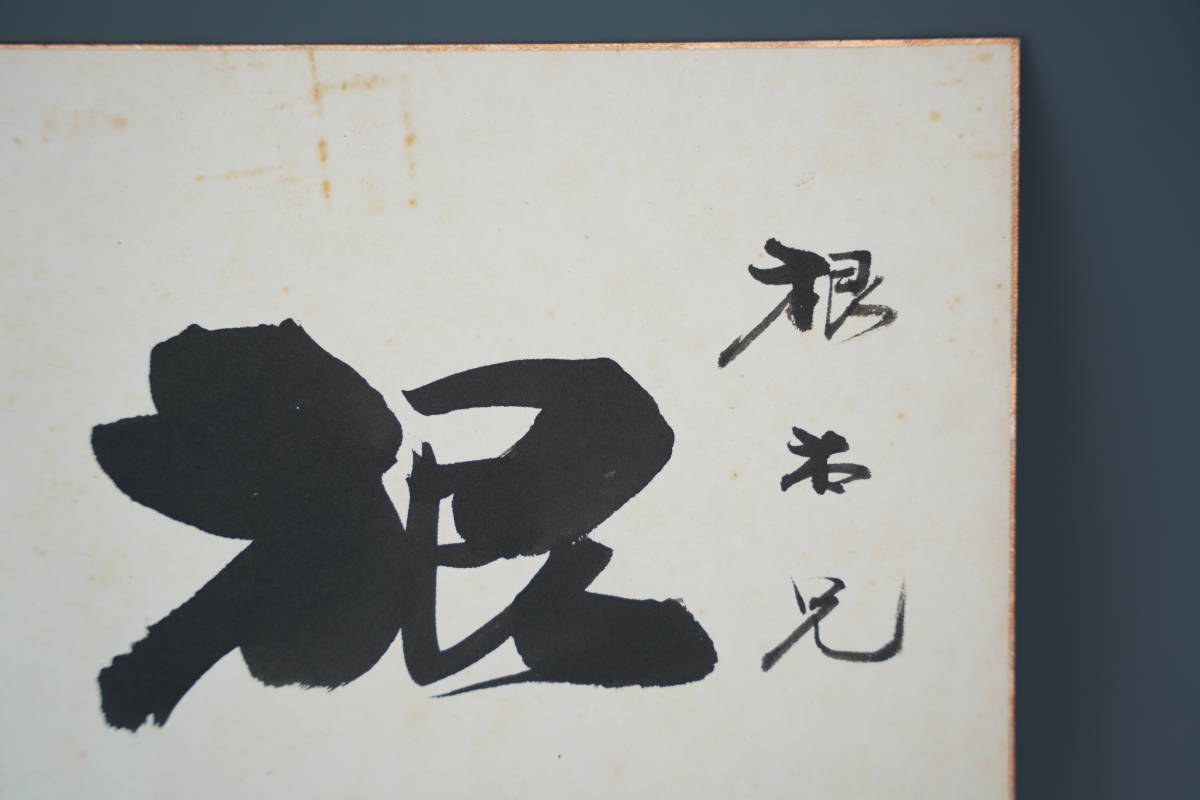 根本兄
根